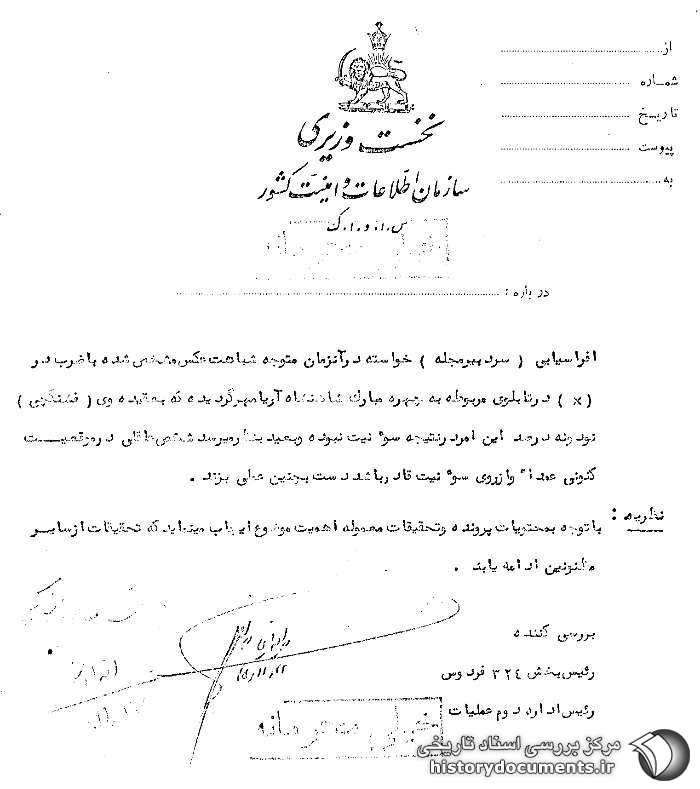 از
شماره
تاریخ
پیوست
به
نخست وزیری
سازمان اطلاعات و امنیت کشور
س.ا.و.ا.ک
خیلی محرمانه
درباره :
افراسیابی ( سردبیر مجله ) خواسته در آنزمان متوجه شباهت عکس مشخص شده با ضرب در
( x ) در تابلوی مربوطه به چهره مبارک شاهنشاه آریامهر گردیده که بعقیده وی ( فشنگچی )
نود و نه درصد این امر در نتیجه سوء نیت نبوده و بعید بنظر میرسد شخص عاقلی در موقعیت
کنونی عمداً و از روی سوء نیت قادر باشد دست بچنین عملی بزند .
نظریه : با توجه بمحتویات پرونده و تحقیقات معموله اهمیت موضوع ایجاب مینماید که تحقیقات از سایر
مظنونین ادامه یابد .
بررسی کننده
رئیس بخش ۳۲۴ فردوس
رئیس اداره دوم عملیات
خیلی محرمانه
مرکز بررسی اسناد تاریخی
historydocuments.ir